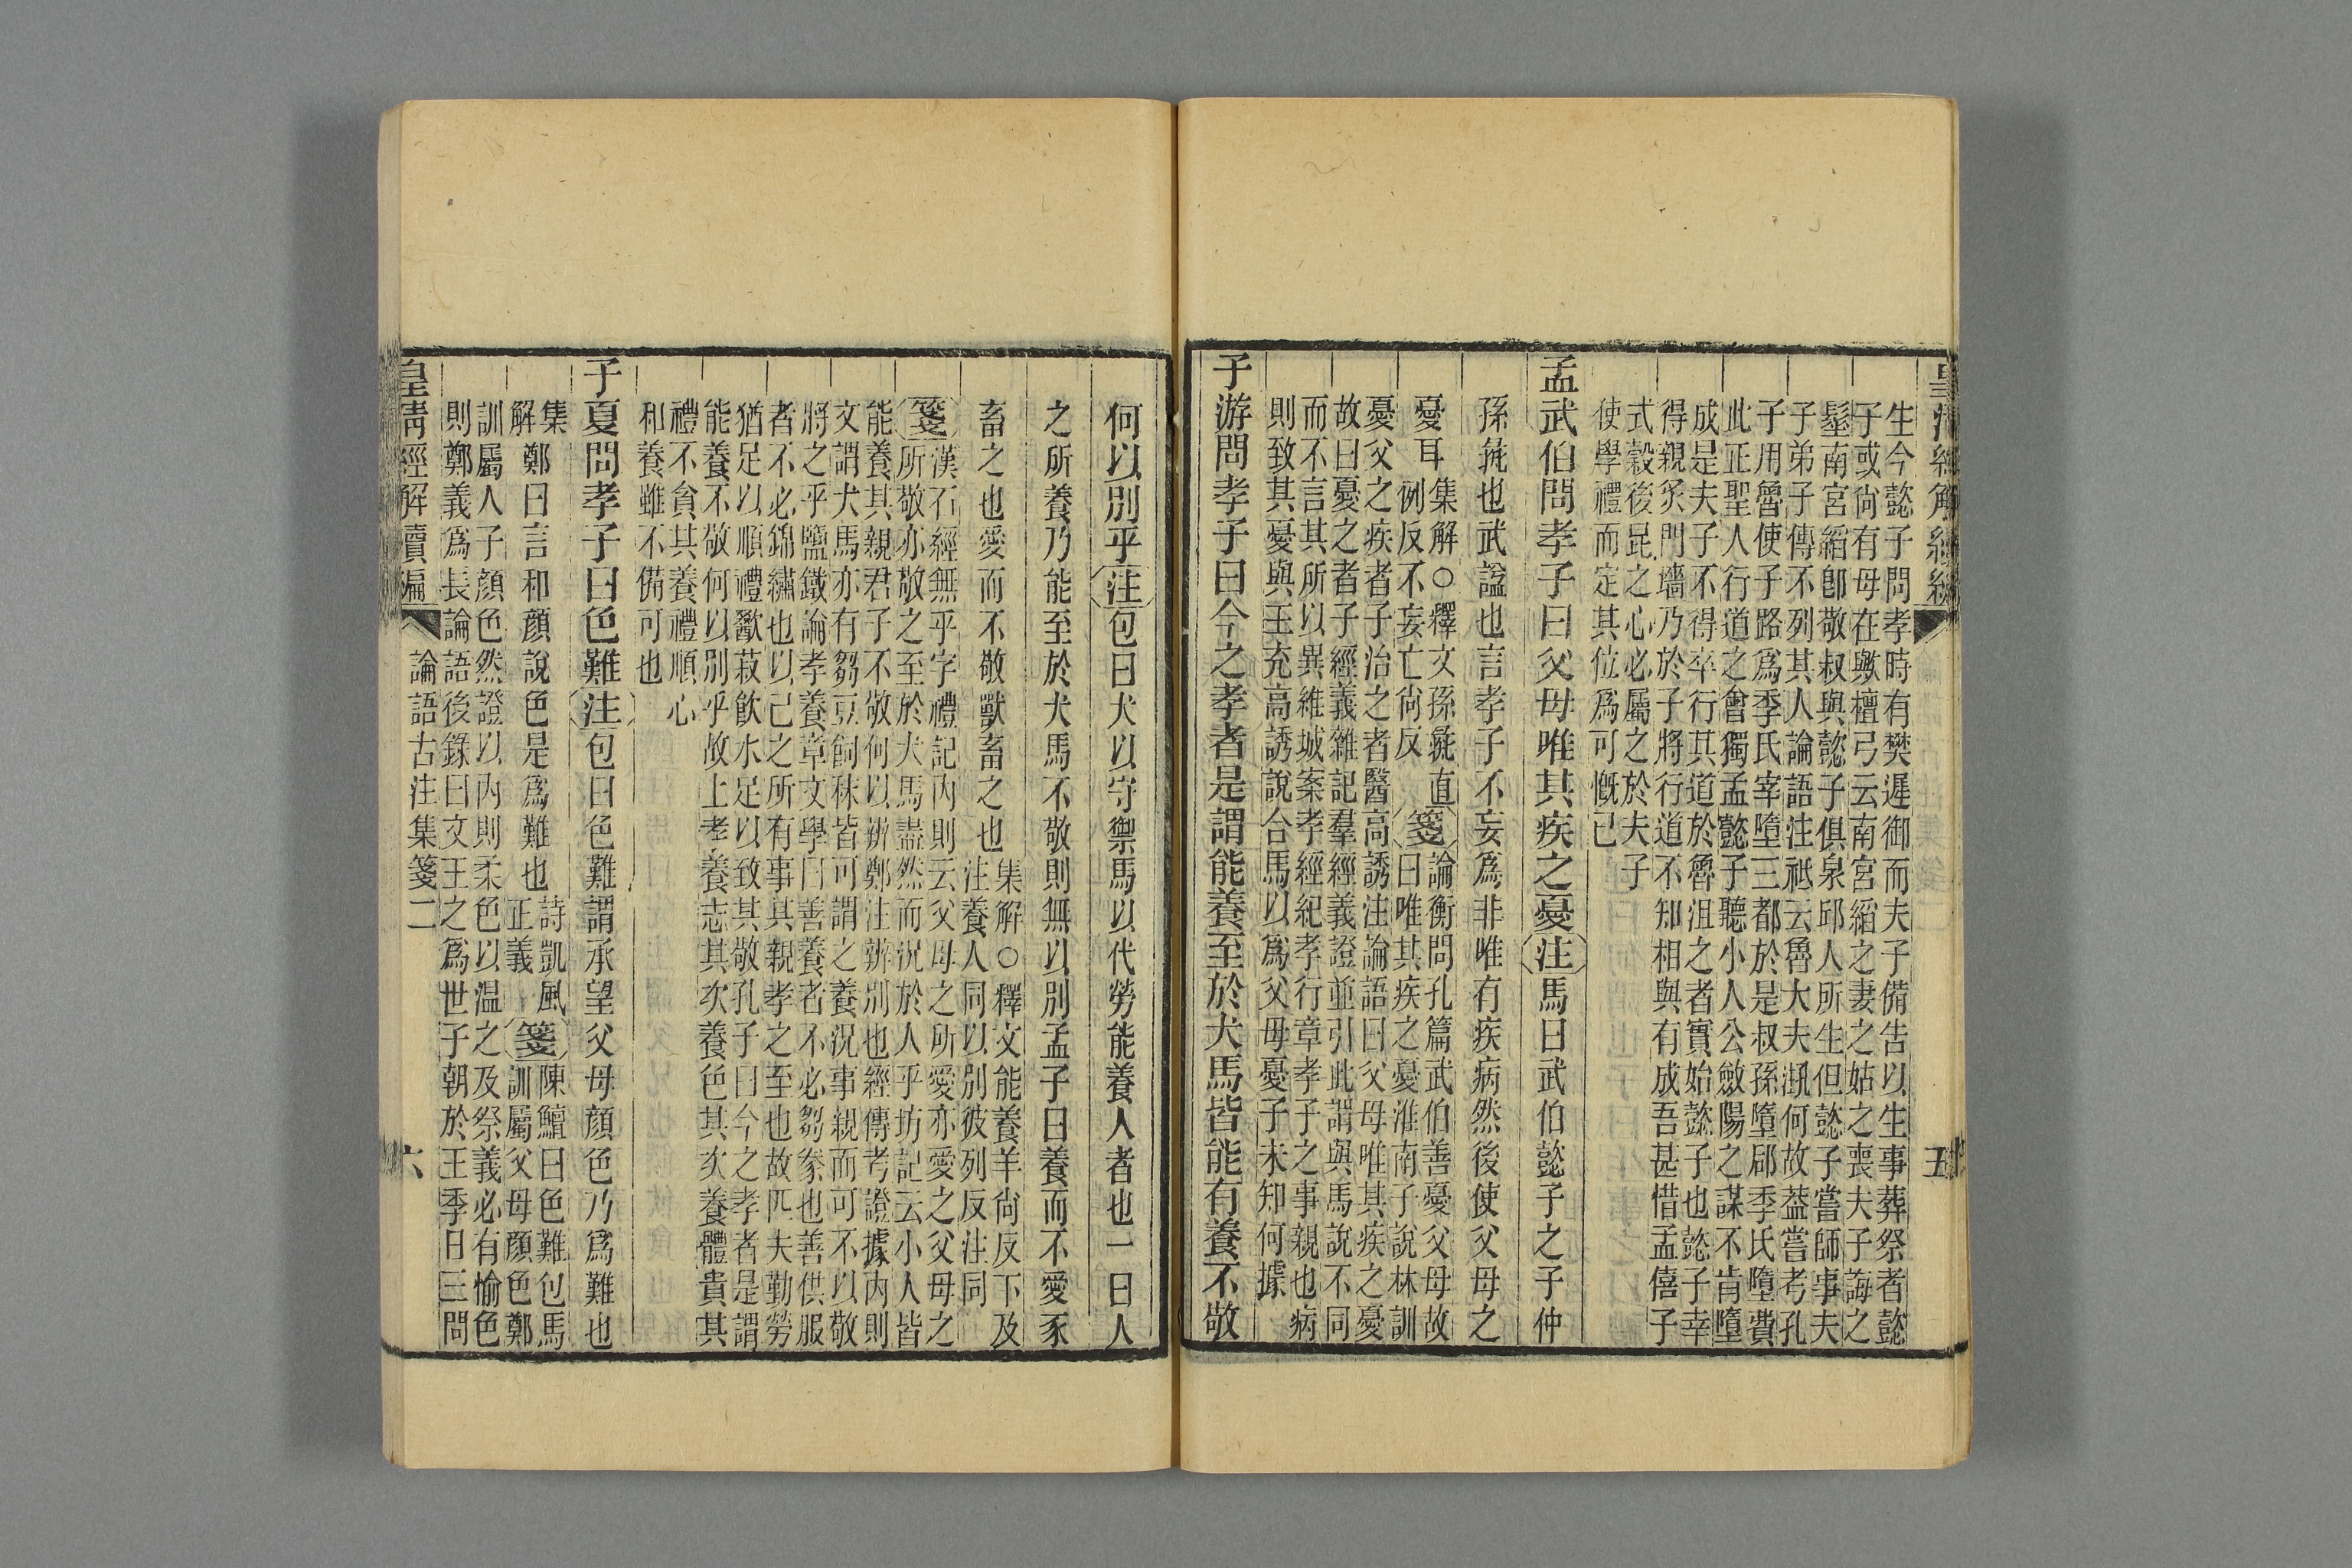 皇清經解續編
五
生今懿子問孝時有樊遲御而夫子備告以生事葬祭者懿
子或尙有母在歟檀弓云南宮縚之妻之姑之喪夫子誨之
髽南宮縚卽敬叔與懿子俱泉邱人所生但懿子嘗師事夫
子弟子傳不列其人論語注祗云魯大夫湖何故葢嘗考孔
子用魯使子路爲季氏宰墮三都於是叔孫墮郈季氏墮費
此正聖人行道之會獨孟懿子聽小人公斂陽之謀不肯墮
成是夫子不得卒行其道於魯沮之者實始懿子也懿子幸
得親炙門墻乃於子將行道不知相與有成吾甚惜孟僖子
式穀後昆之心必屬之於夫子
使學禮而定其位爲可慨已
孟武伯問孝子曰父母唯其疾之憂注馬曰武伯懿子之子仲
孫彘也武諡也言孝子不妄爲非唯有疾病然後使父母之
憂耳
集解○釋文孫彘直
例反不妄亡尙反
箋
論衡問孔篇武伯善憂父母故
曰唯其疾之憂淮南子說林訓
憂父之疾者子治之者醫高誘注論語曰父母唯其疾之憂
故曰憂之者子經義雜記羣經義證並引此謂與馬說不同
而不言其所以異維城案孝經紀孝行章孝子之事親也病
則致其憂與王充高誘說合馬以爲父母憂子未知何據
子游問孝子曰今之孝者是謂能養至於犬馬皆能有養不敬
何以別乎注包曰犬以守禦馬以代勞能養人者也一曰人
之所養乃能至於犬馬不敬則無以別孟子曰養而不愛豕
畜之也愛而不敬獸畜之也
集解○釋文能養羊尙反下及
注養人同以別彼列反注同
箋
漢石經無乎字禮記內則云父母之所愛亦愛之父母之
所敬亦敬之至於犬馬盡然而況於人乎坊記云小人皆
能養其親君子不敬何以辨鄭注辨別也經傳考證據內則
文謂犬馬亦有芻豆飼秣皆可謂之養況事親而可不以敬
將之乎鹽鐵論孝養章文學曰善養者不必芻豢也善供服
者不必錦繡也以己之所有事其親孝之至也故匹夫勤勞
猶足以順禮歠菽飮水足以致其敬孔子曰今之孝者是謂
能養不敬何以別乎故上孝養志其次養色其次養體貴其
禮不貪其養禮順心
和養雖不備可也
子夏問孝子曰色難注包曰色難謂承望父母顏色乃爲難也
集
解
鄭曰言和顏說色是爲難也
詩凱風
正義
箋
陳鱣曰色難包馬
訓屬父母顏色鄭
訓屬人子顏色然證以內則柔色以温之及祭義必有愉色
則鄭義爲長論語後錄曰文王之爲世子朝於王季日三問
皇清經解續編
論語古注集箋二
六